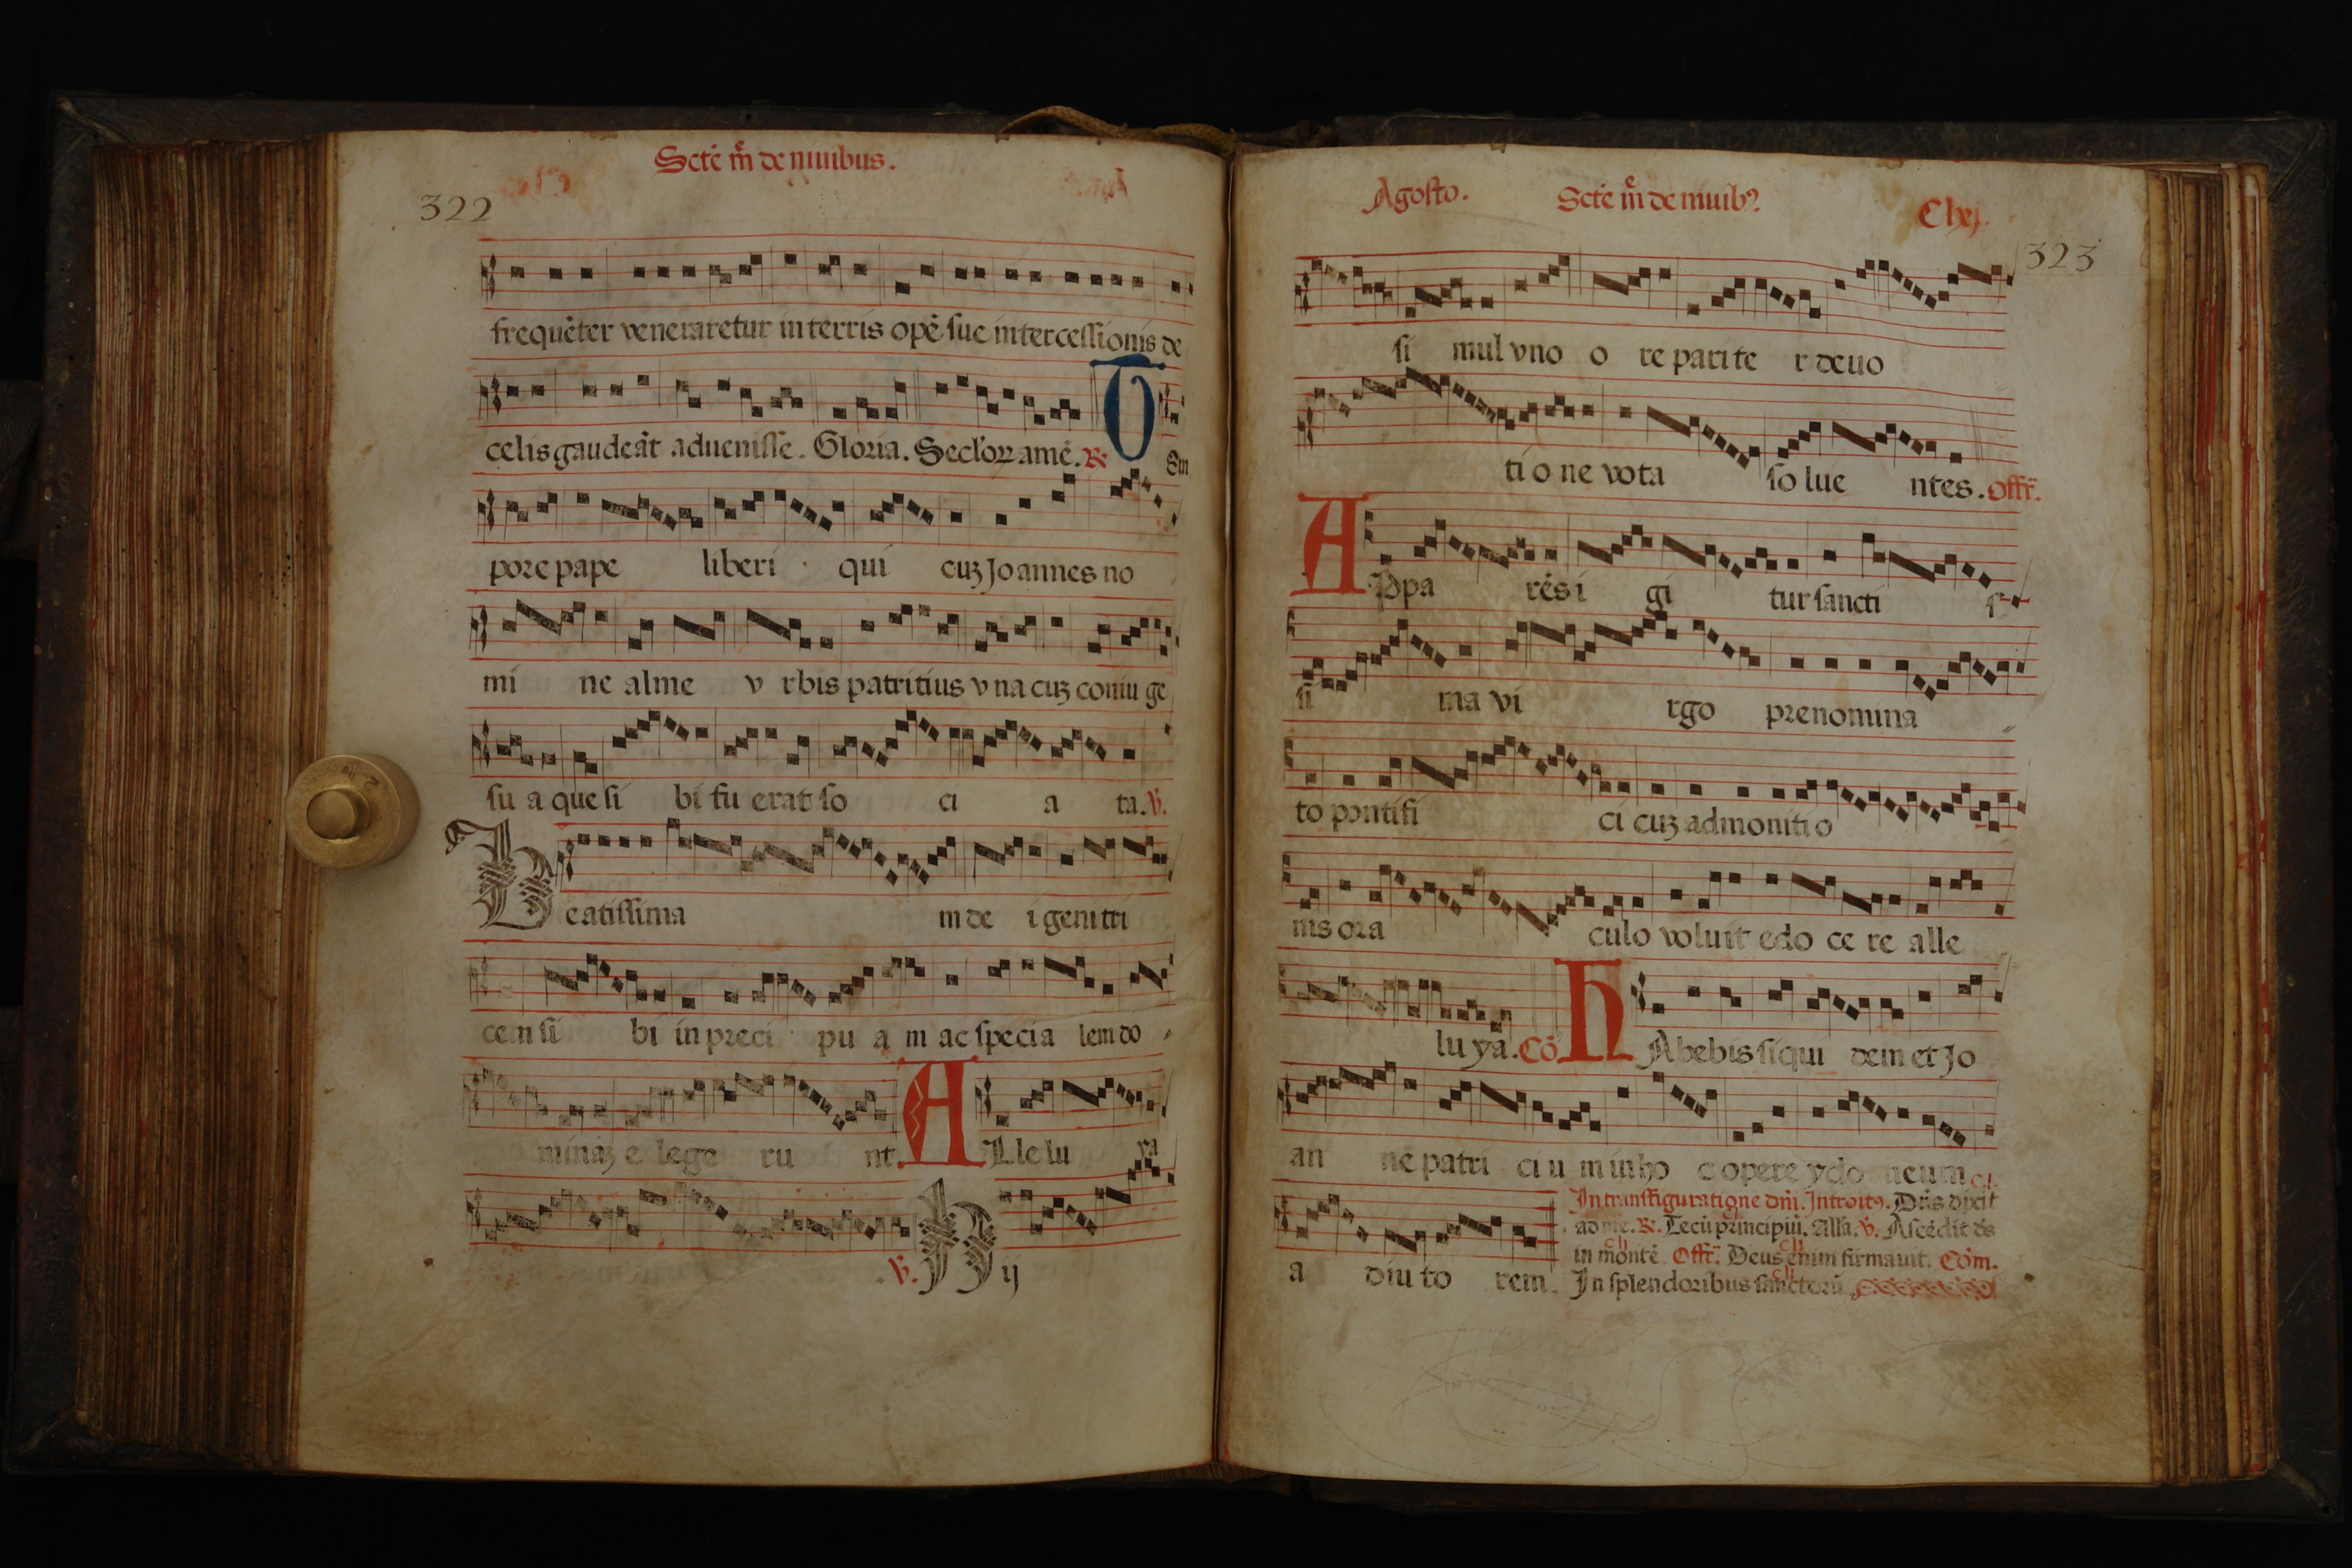 Sctē m̄e de niuibus.
322
frequēter veneraretur in terris opē sue intercessionis de
celis gaudeāt aduenisse. Gloria. Seclorꝝ amē. ℟.
T em
pore pape liberi qui cuꝫ Joannes no
mi ne alme v rbis patritius vna cuꝫ coniu ge
su a que si bi fu erat so ci a ta. ℣.
B eatissima m de i genitri
cem si bi in preci pu a m ac specia lem do
mināꝫ e lege ru nt.
A Lle lu ya
℣. H ij
Agosto. Sctē m̄e de niuibꝰ. Clxj.
323
si mul vno o re parite r deuo
ti o ne vota so lue ntes. Offr̄.
A Ppa rēs i gi tur sancti s
si ma vi rgo prenomina
to pontifi ci cuꝫ admoniti o
nis ora culo voluit edo ce re alle
lu ya. Cō
H Abebis siqui dem et Jo
an nē patri ci u m in ho c opere ydo neum
a diu to rem.
In transfiguratione dn̄i. Introitꝰ. Dn̄s dixit
ad me. ℟. Tecū principiū. Alla. ℣. Ascēdit ds
in montē Offr̄. Deus enim firmauit. Com.
In splendoribus sanctorū